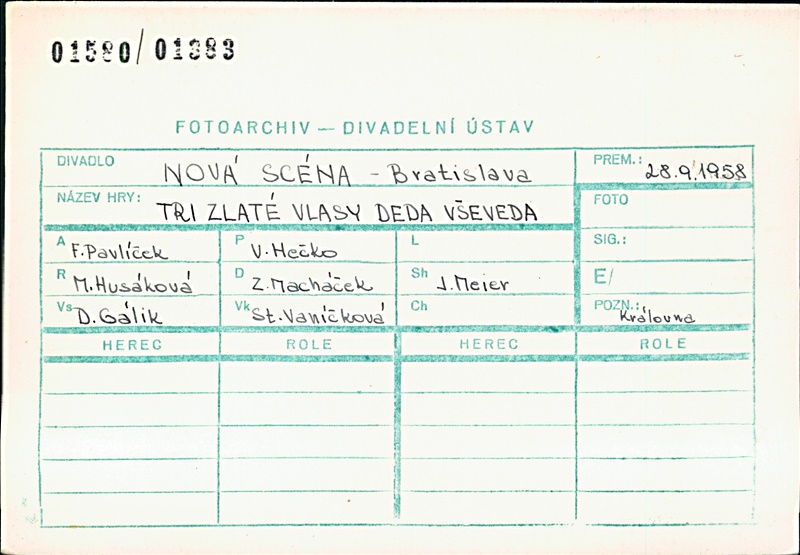 01580/01383
FOTOARCHIV — DIVADELNÍ ÚSTAV
DIVADLO NOVÁ SCÉNA - Bratislava PREM.: 28.9.1958
NÁZEV HRY: TRI ZLATÉ VLASY DEDA VŠEVEDA FOTO
A F. Pavlíček P V. Hečko L SIG.:
R M. Husáková D Z. Macháček Sh J. Meier E/
Vs D. Gálik Vk St. Vaníčková Ch POZN.: Královna
HEREC ROLE HEREC ROLE